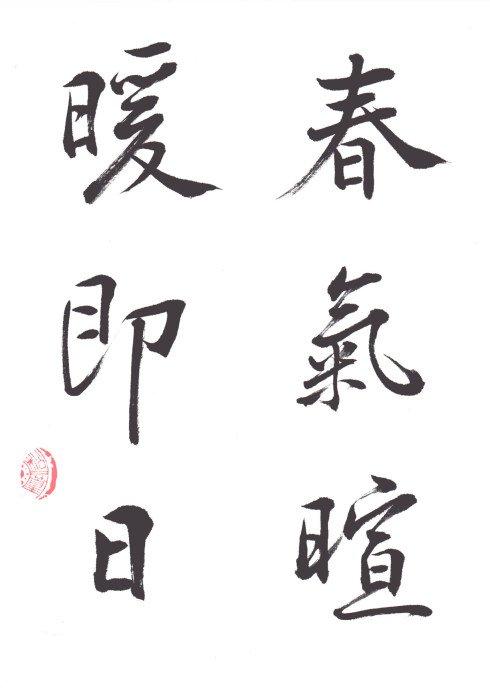 春氣暄
暖即日